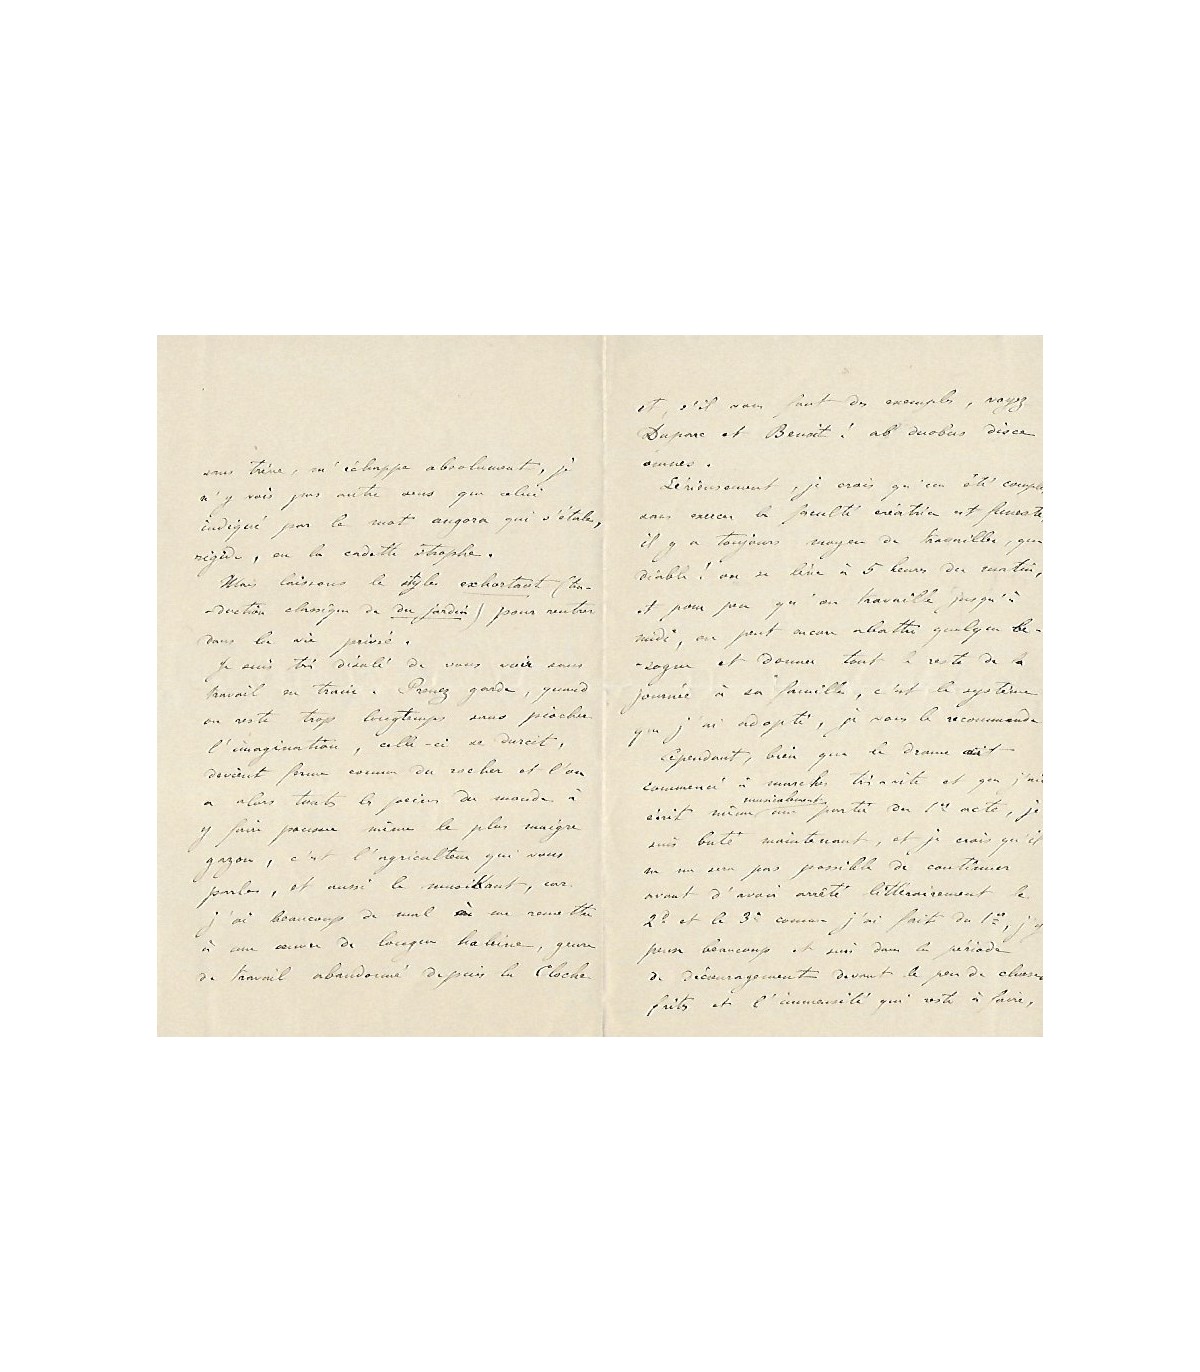 sans trève, m'échappe absolument, je
n'y vois pas autre sens que celui
indiqué par le mot angora qui s'étale,
rigide, en la cadette strophe.
Mais laissons le style exhortant (tra-
-duction classique de du jardin) pour rentrer
dans la vie privée.
Je suis très désolé de vous voir sans
travail en train. Prenez garde, quand
on reste trop longtemps sans piocher
l'imagination, celle-ci se durcit,
devient ferme comme du rocher et l'on
a alors toutes les peines du monde à
y faire pousser même le plus maigre
gazon, c'est l'agriculteur qui vous
parle, et aussi le musikant, car
j'ai beaucoup de mal à me remettre
à une œuvre de longue haleine, genre
de travail abandonné depuis la Cloche
et, s'il vous faut des exemples, voyez
Duparc et Benoit! ab duobus disce
omnes.
Sérieusement, je crois qu'un été complet
sans exercer la faculté créatrice est funeste,
il y a toujours moyen de travailler, que
diable! on se lève à 5 heures du matin,
et pour peu qu'on travaille jusqu'à
midi, on peut encore abattre quelque be-
-sogne et donner tout le reste de la
journée à sa famille, c'est le système
que j'ai adopté, je vous le recommande
Cependant, bien que le drame ait
commencé à marcher très vite et que j'aie
écrit même musicalement une partie du 1er acte, je
suis buté maintenant, et je crois qu'il
ne me sera pas possible de continuer
avant d'avoir arrêté littérairement le
2d et le 3e comme j'ai fait du 1er, j'y
pense beaucoup et suis dans la période
de découragement devant le peu de choses
faites et l'immensité qui reste à faire,